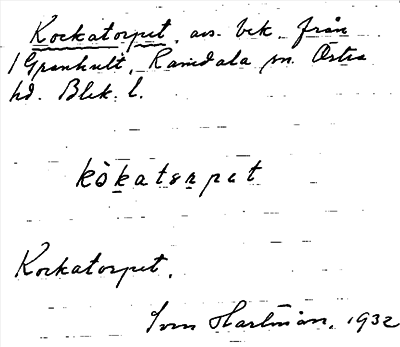 Kockatorpet, avs. bek. från
1 Grenhult, Ramdala sn. Östra
hd. Blek. l.
kòkatɵrpet
Kockatorpet.
Sven Hartman, 1932